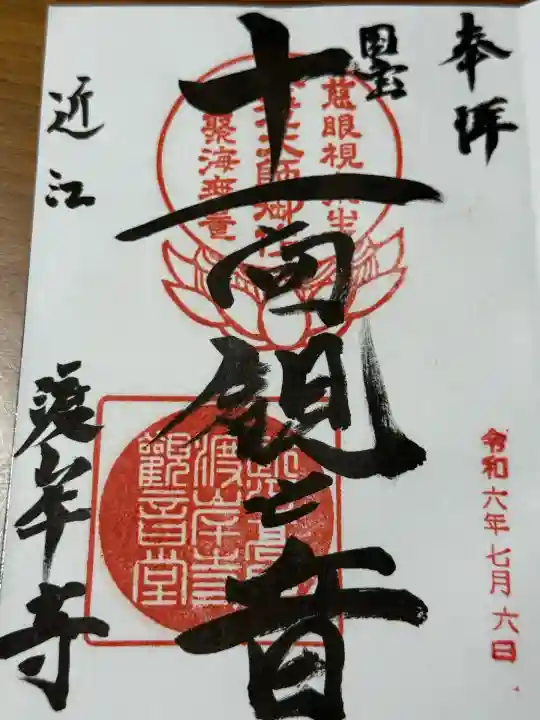 奉拝
国宝
十一面観世音
近江
渡岸寺
慈眼視衆生
聚海無量
渡岸寺
観音堂
令和六年七月六日